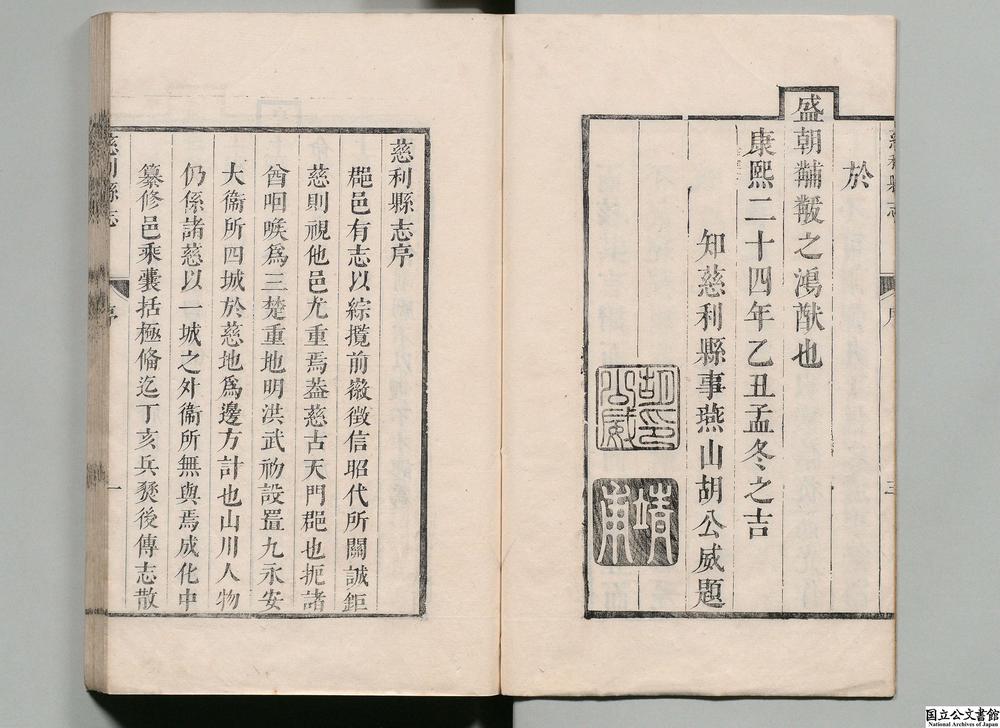 慈利縣志
於
盛朝黼黻之鴻猷也
康熙二十四年乙丑孟冬之吉
知慈利縣事燕山胡公威題
胡公威印
慈利縣志序
郡邑有志以綜攬前徽徵信昭代所關誠鉅
慈則視他邑尤重焉葢慈古天門郡也扼諸
酋咽喉爲三楚重地明洪武初設置九永安
大衞所四城於慈地爲邊方計也山川人物
仍係諸慈以一城之外衞所無與焉成化中
纂修邑乘囊括極備迄丁亥兵燹後傳志散
慈利縣志
序
一
国立公文書館
National Archives of Japan